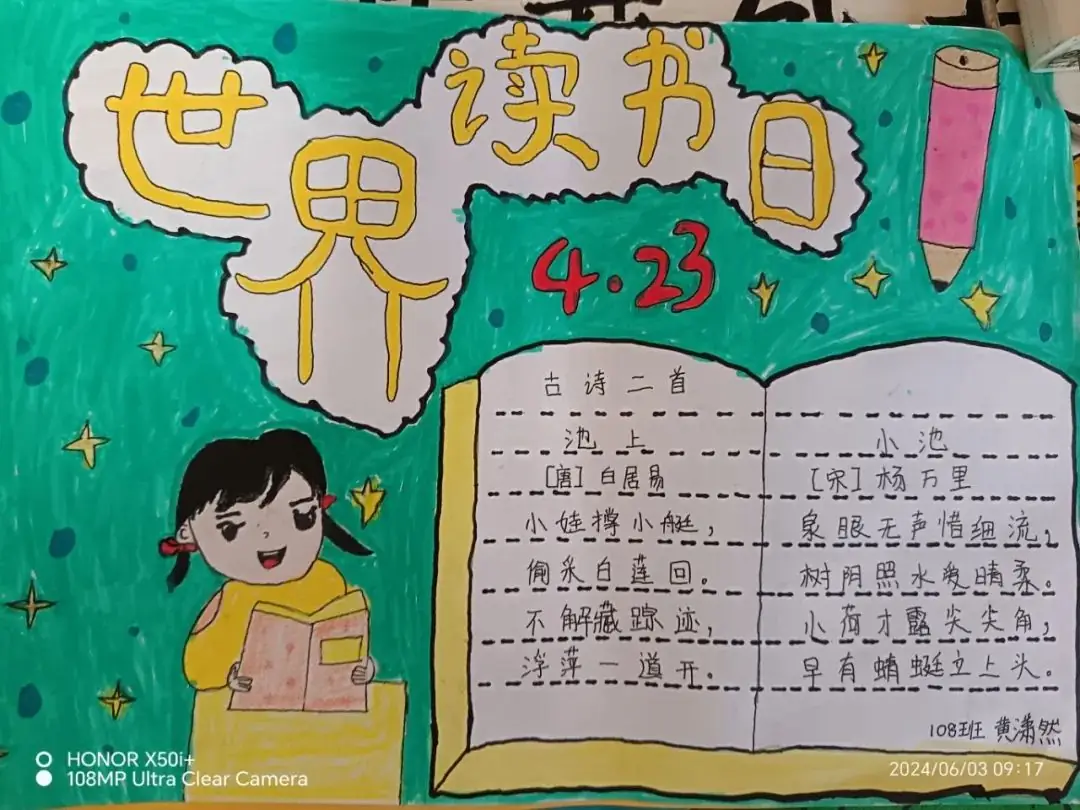 世界读书日
4.23
古诗二首
池上
[唐]白居易
小娃撑小艇,
偷采白莲回。
不解藏踪迹,
浮萍一道开。
小池
[宋]杨万里
泉眼无声惜细流,
树阴照水爱晴柔。
小荷才露尖尖角,
早有蜻蜓立上头。
108班 黄潇然
HONOR X50i+
108MP Ultra Clear Camera
2024/06/03 09:17